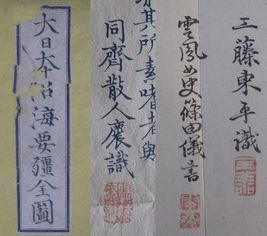 三藤東平識
雲鳳女史篠田儀書
有其所素嗜者與
同齊散人慶識
大日本沿海要疆全圖